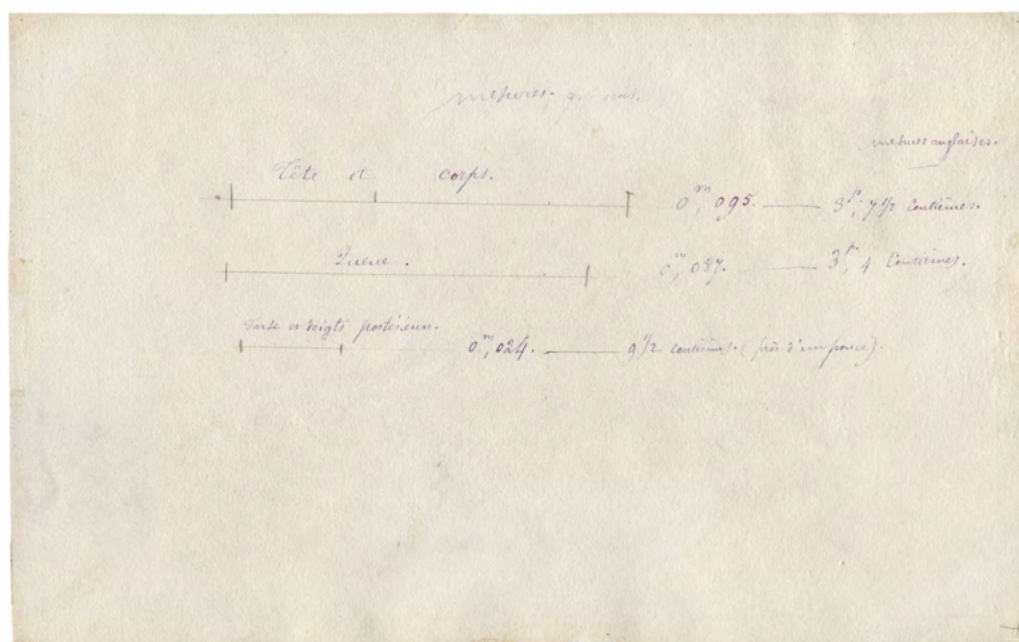 mesures.
mesures anglaises.
Tête et corps. 0^m,095. — 3^p; 7 1/2 Centièmes.
Queue. 0^m,087. — 3^p, 4 Centièmes.
Tarse et doigts postérieurs. 0^m,024. — 9 1/2 centièmes. (près d'un pouce).